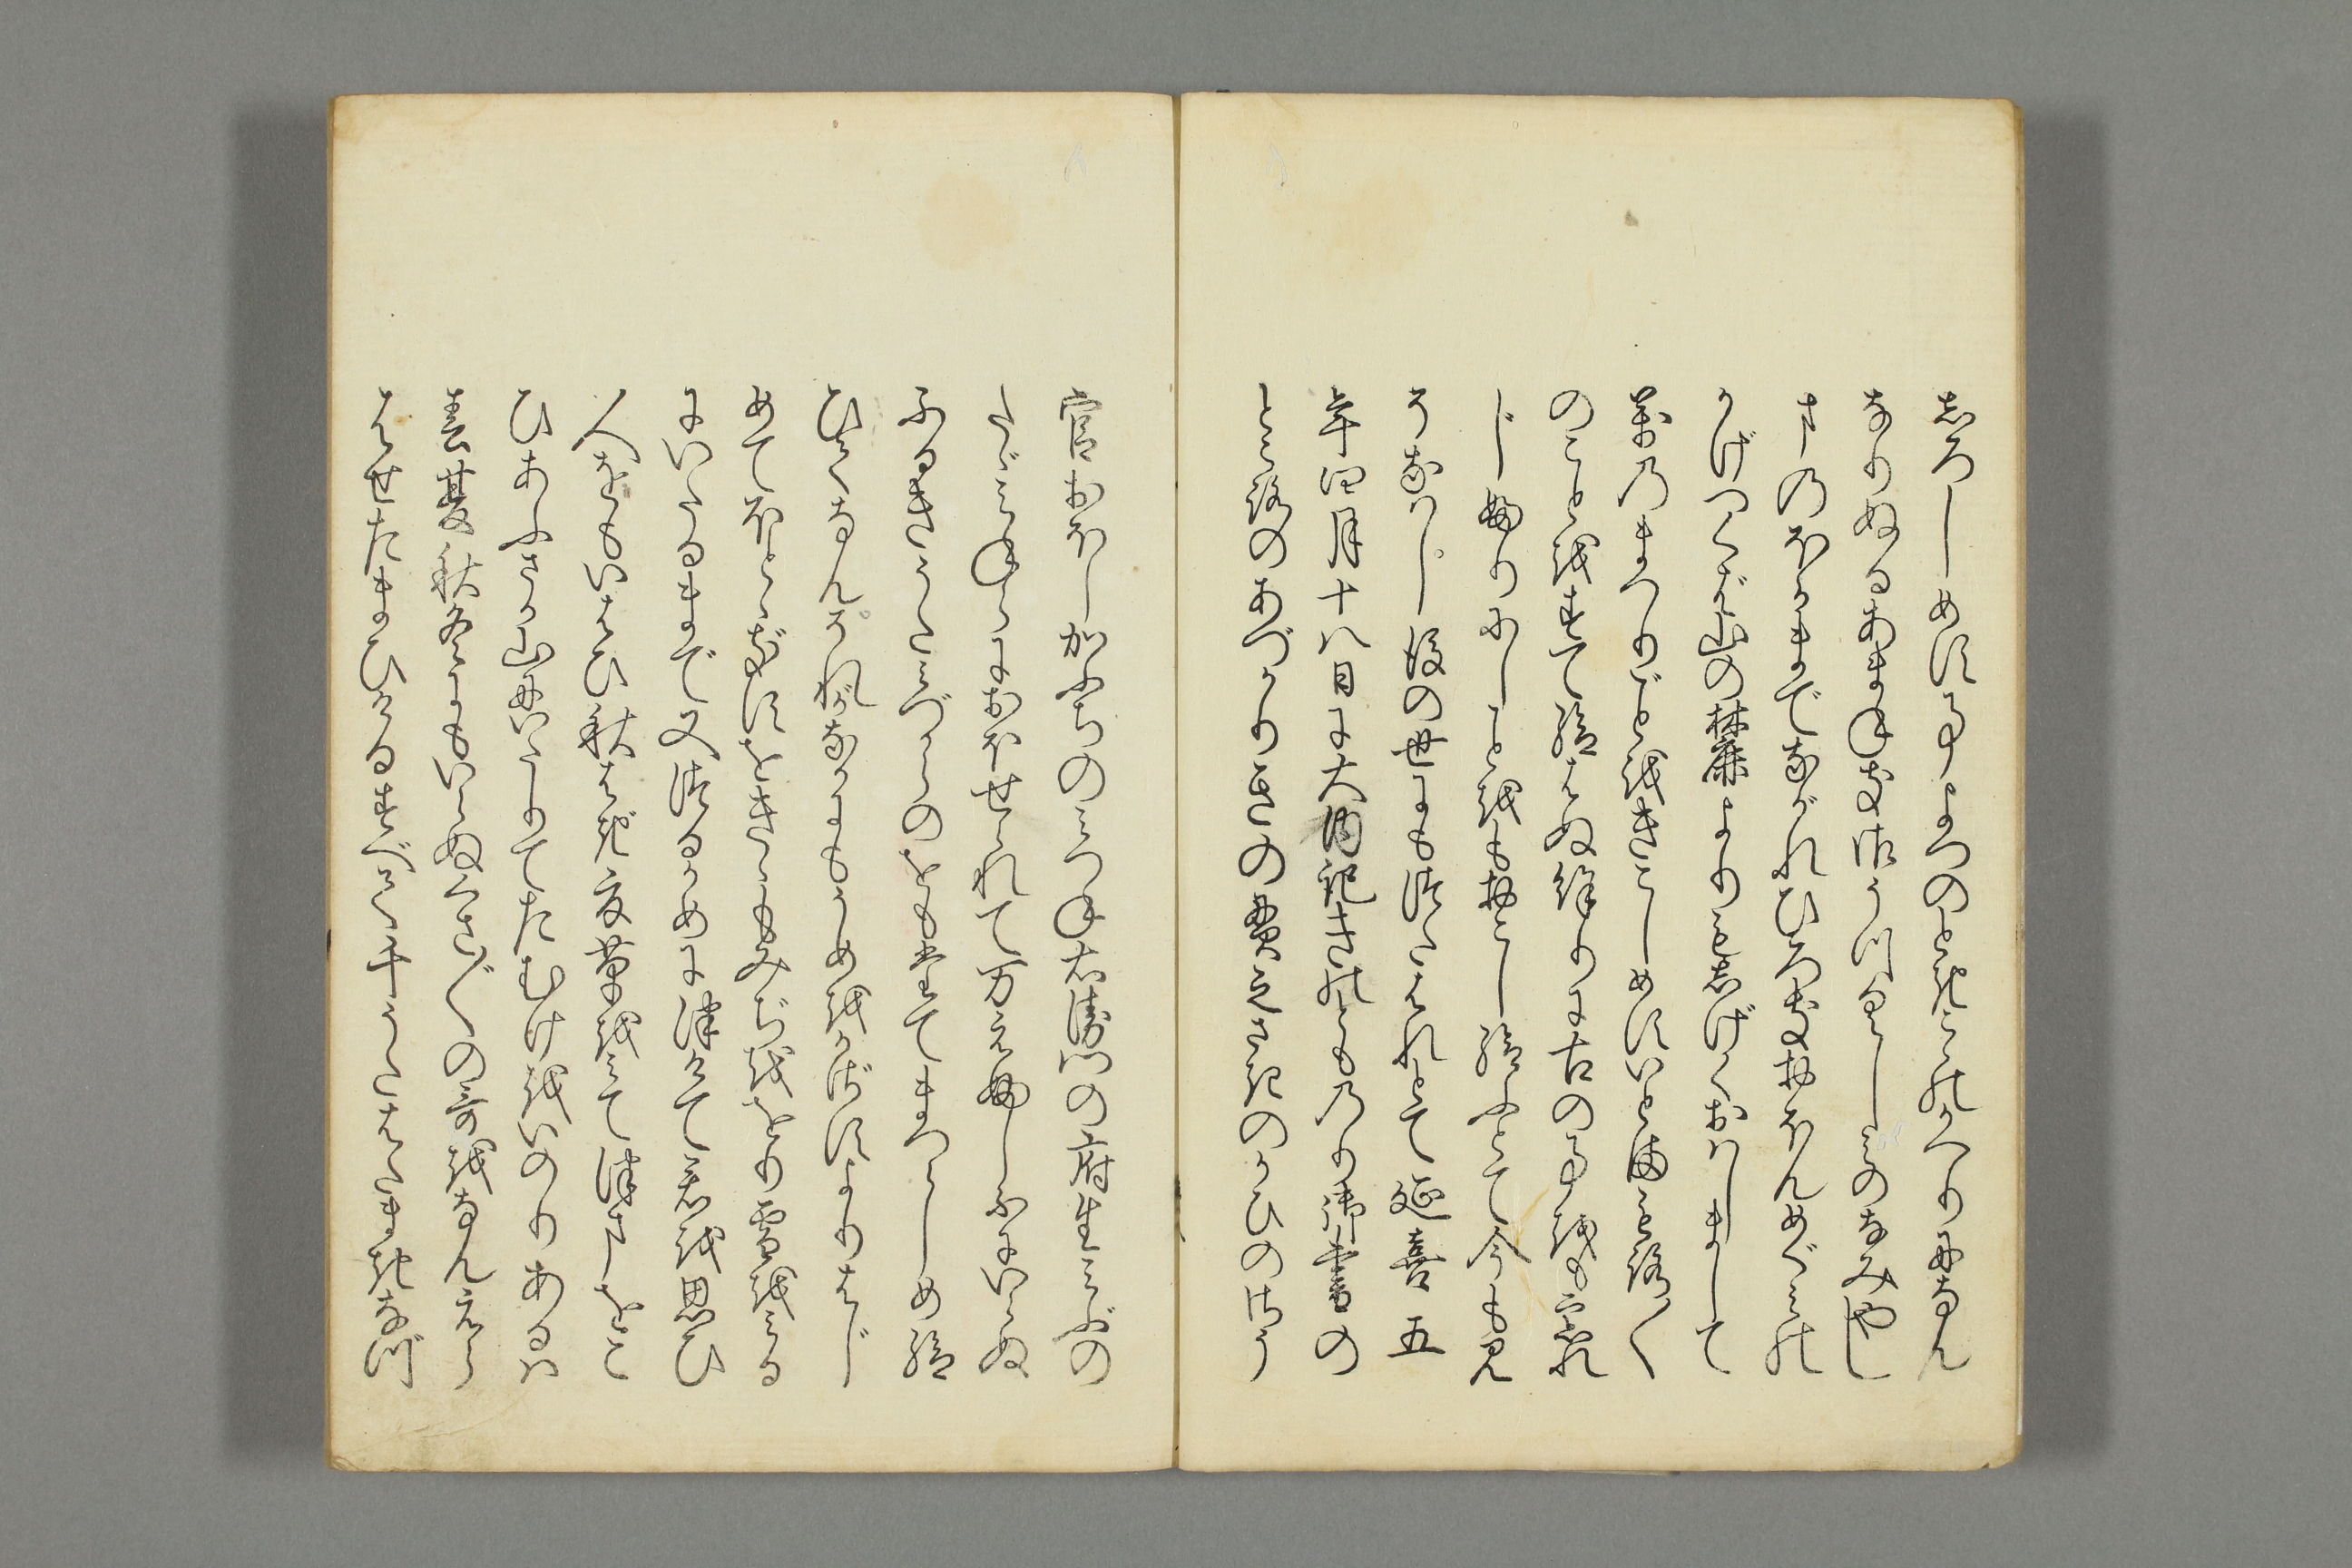 志ろしめす事よつのとき九のかへりになん
なりぬるあまねき御うつくしみのなみやし
まのほかまでながれひろきおほんめぐみの
かげつくば山の麓よりもしげくおはしまして
萬のまつりごとをきこしめすいとまもろ〱
のことをすて給はぬ餘りに古の事をもわすれ
じ婦りにしことをもおこし給ふとて今も見
そなはし後の世にもつたはれとて延喜五
年四月十八日に大内記きのとものり御書の
ところのあづかりきの貫之さきのかひのさう
官おほしかふちのみつね右衛門の府生みぶの
たゞみねらにおほせられて万えふしふにいらぬ
ふるきうたみづからのをもたてまつらしめ給
ひてなんそれがなかにもうめをかざすよりはじ
めてほとゝぎすをきゝもみぢををり雪をみる
にいたるまで又つるかめにつけて君を思ひ
人をもいはひ秋はぎ夏草をみてつまをこ
ひあふさか山にいたりてたむけをいのりあるは
春夏秋冬にもいらぬくさ〲の哥をなんえら
ばせたまひけるすべて千うたはたまきなづ